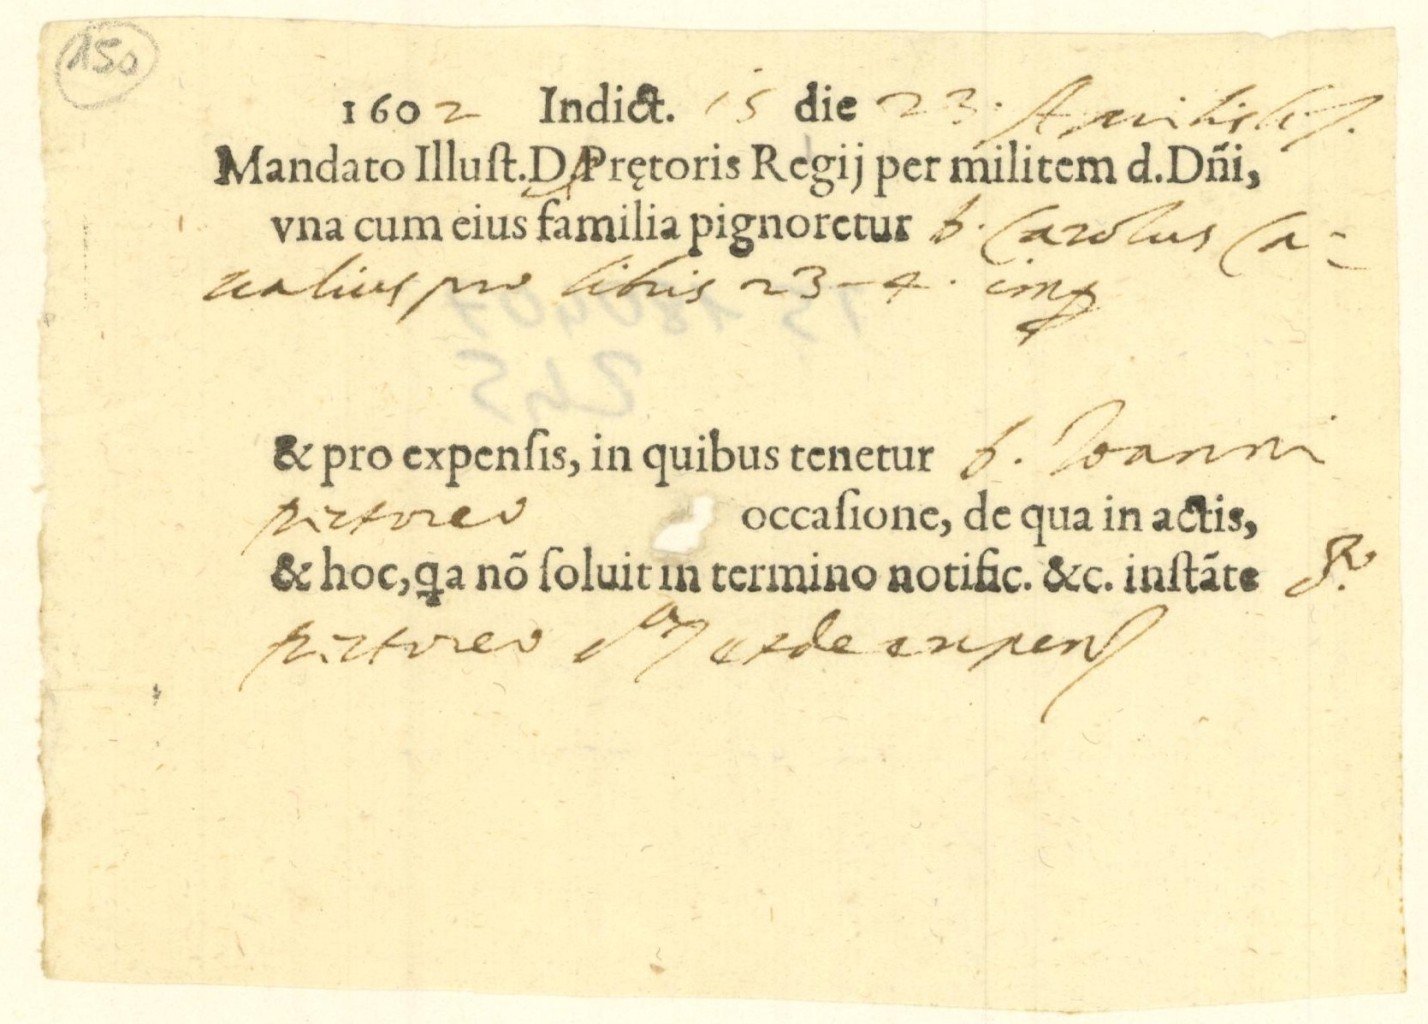 150
1602 Indict. 15 die 23. Aprilis
Mandato Illuſt. D. Prętoris Regij per militem d. Dñi,
vna cum eius familia pignoretur d. Carolus Ca-
ualius pro libris 23 - 4. imp
& pro expenſis, in quibus tenetur d. Ioanni
pictoreo occaſione, de qua in actis,
& hoc, qa nõ ſoluit in termino notific. &c. inſtãte
pictoreo et de expens